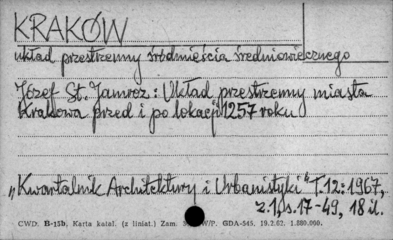 KRAKÓW
układ przestrzenny śródmieścia średniowiecznego
Józef St. Jamroz: Układ przestrzenny miasta
Krakowa przed i po lokacji 1257 roku
„Kwartalnik Architektury i Urbanistyki" T.12: 1967,
z.1, s.17-49, 18 il.
CWD. B-15b, Karta katal. (z liniat.) Zam. W/P. GDA-545. 19.2.62. 1.880.000.